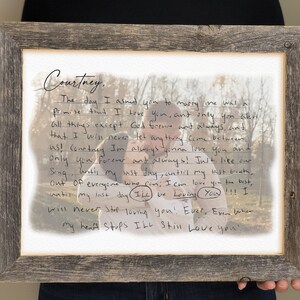 Courtney,
The day I asked you to marry me was a
promise that I love you, and only you above
all things except God forever and always, and
that I will never let anything come between
us! Courtney Im always gonna love you and
only you forever and always! Just like our
Song, until my last day, until my last breath.
Out of everyone who can, I can love you the best
until my last day I'LL be Loving You! I
will never stop loving you! Ever, Even when
my heart stops ILL Still Love you